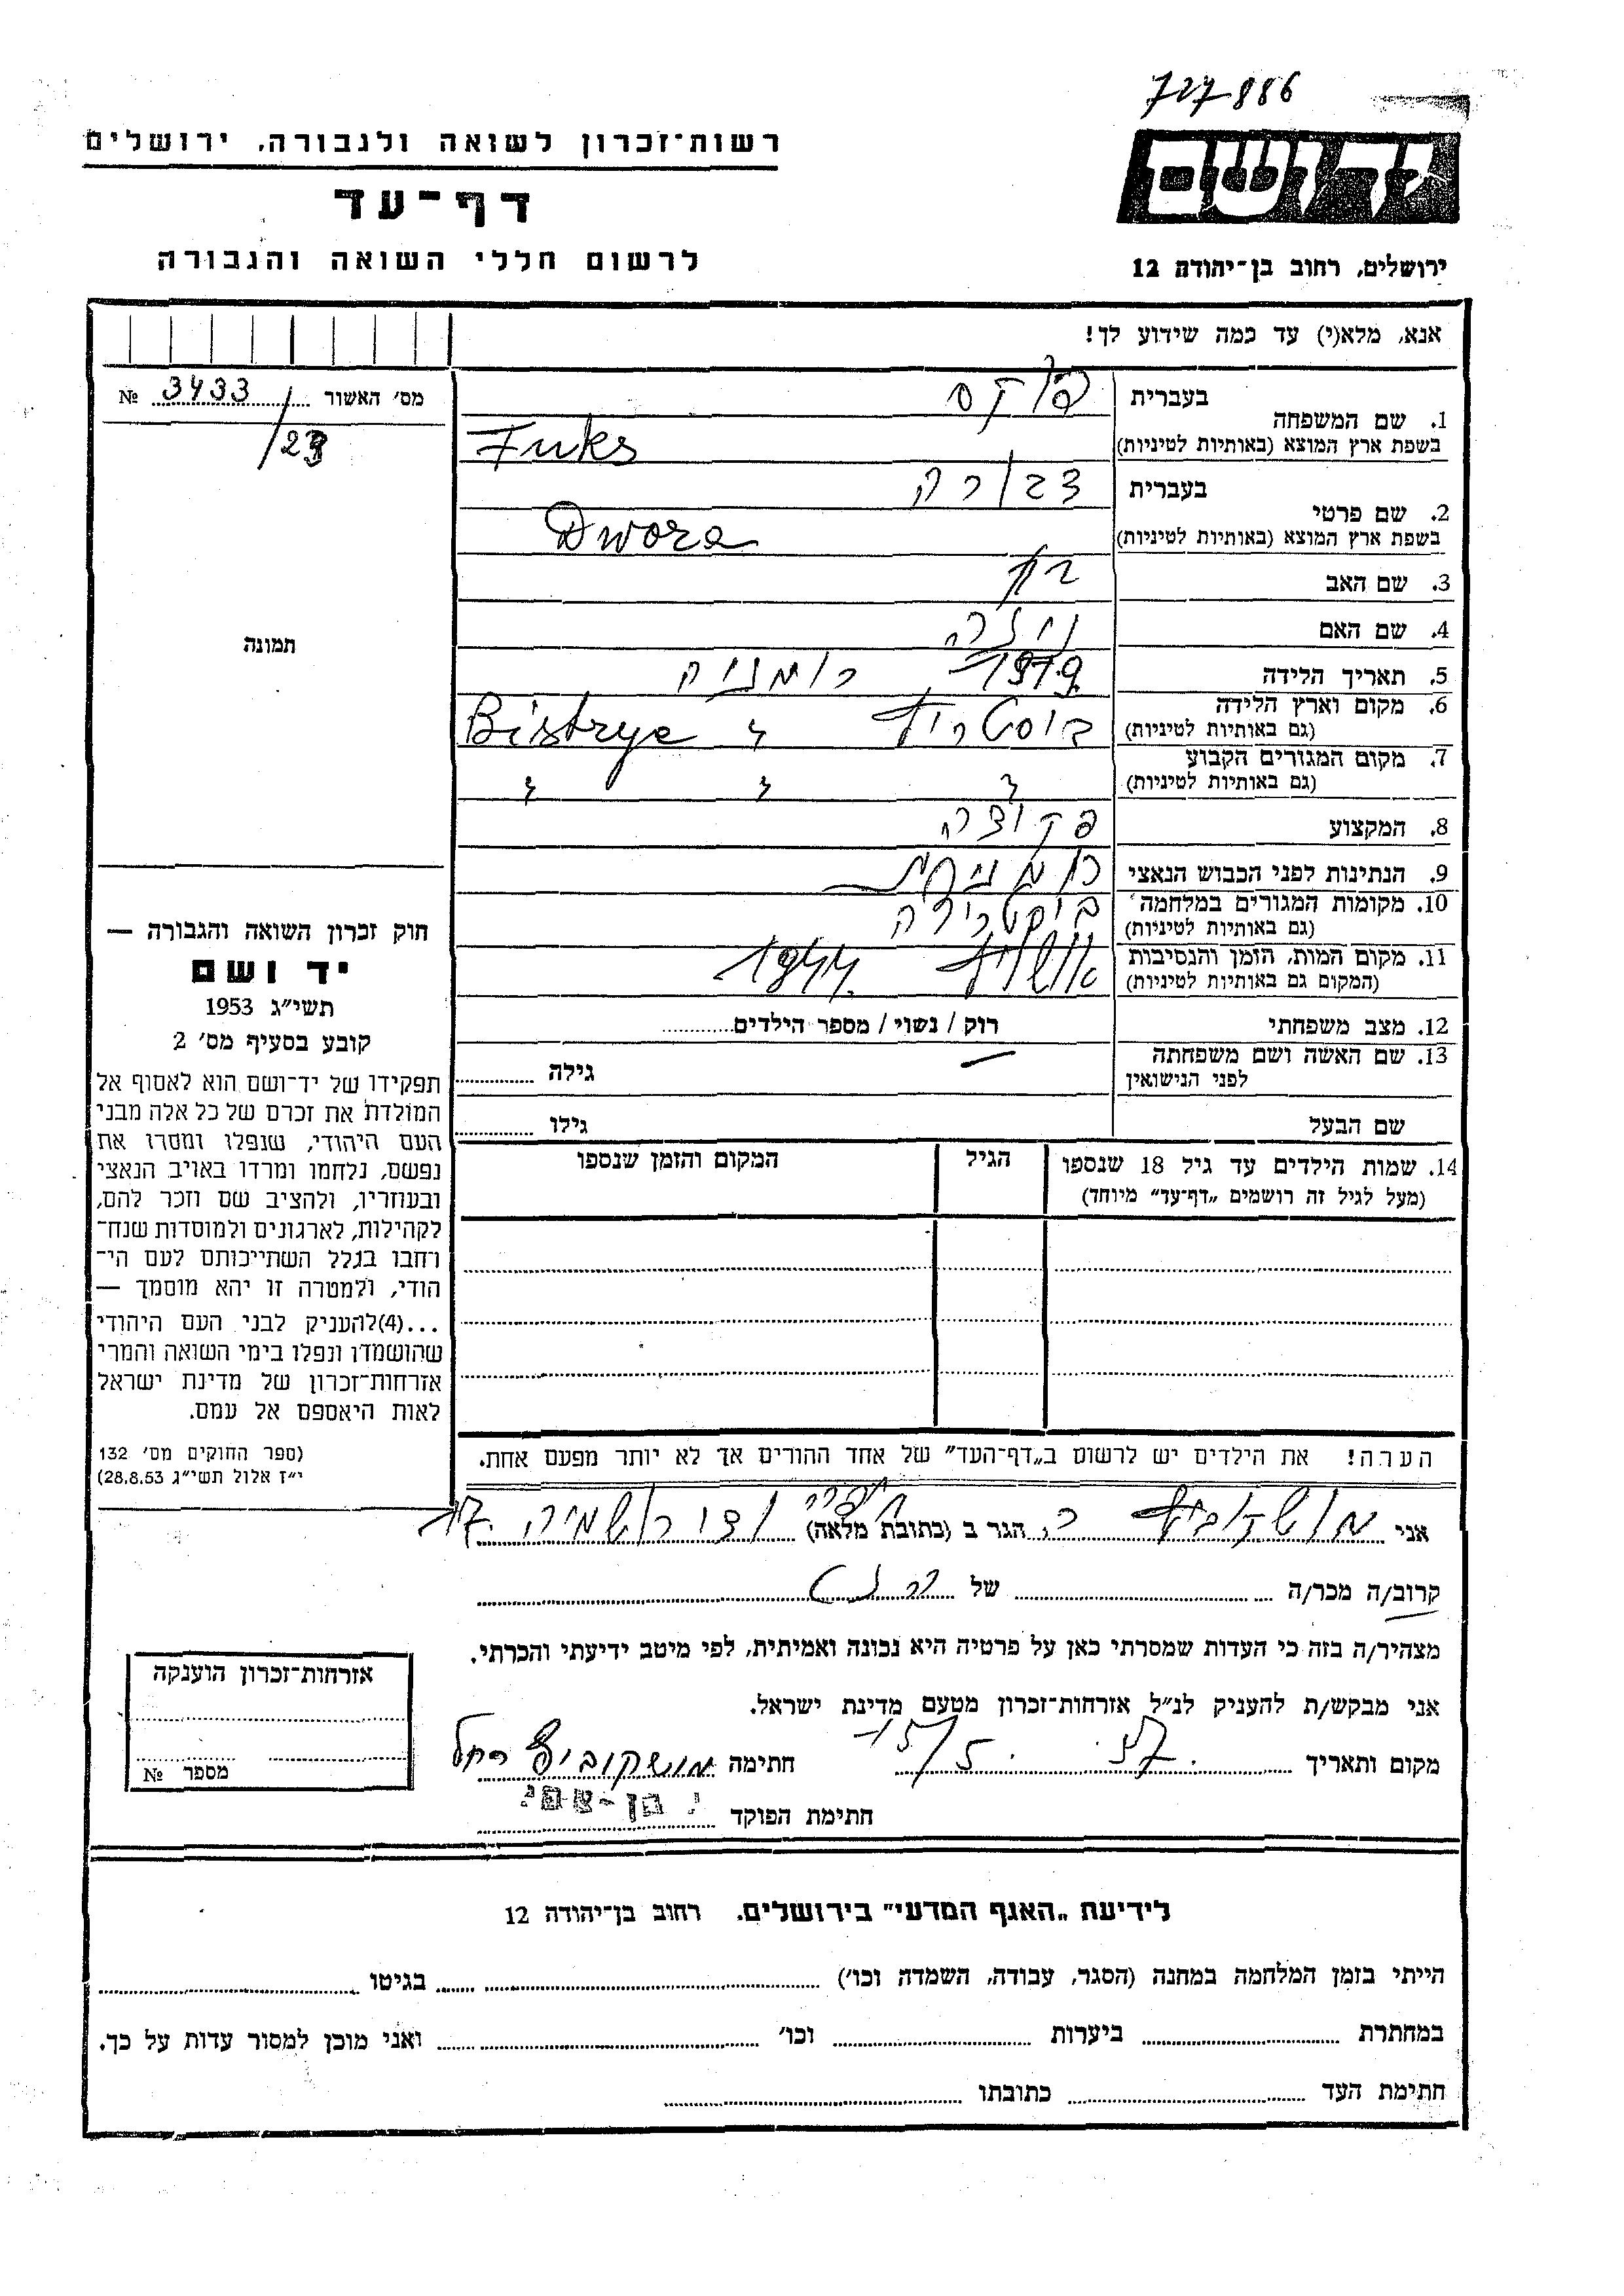 727886
רשות־זכרון לשואה ולגבורה, ירושלים
דף־עד
לרשום חללי השואה והגבורה
יד ושם
ירושלים, רחוב בן־יהודה 12
אנא, מלא(י) עד כמה שידוע לך!
מס׳ האשור 3433 №
/23
בעברית פוקס
1. שם המשפחה
בשפת ארץ המוצא (באותיות לטיניות) Fuks
בעברית דבורה
2. שם פרטי
בשפת ארץ המוצא (באותיות לטיניות) Dwora
3. שם האב
4. שם האם
5. תאריך הלידה 1919 רומניה
6. מקום וארץ הלידה
(גם באותיות לטיניות) Bistrye
7. מקום המגורים הקבוע
(גם באותיות לטיניות)
8. המקצוע פקידה
9. הנתינות לפני הכבוש הנאצי רומנית
10. מקומות המגורים במלחמה
(גם באותיות לטיניות)
11. מקום המות, הזמן והנסיבות אושויץ 1944
(המקום גם באותיות לטיניות)
12. מצב משפחתי רוק / נשוי / מספר הילדים
13. שם האשה ושם משפחתה גילה
לפני הנישואין
שם הבעל גילו
14. שמות הילדים עד גיל 18 שנספו הגיל המקום והזמן שנספו
(מעל לגיל זה רושמים „דף־עד” מיוחד)
הערה! את הילדים יש לרשום ב„דף־העד” של אחד ההורים אך לא יותר מפעם אחת.
תמונה
חוק זכרון השואה והגבורה —
יד ושם
תשי״ג 1953
קובע בסעיף מס׳ 2
תפקידו של יד־ושם הוא לאסוף אל
המולדת את זכרם של כל אלה מבני
העם היהודי, שנפלו ומסרו את
נפשם, נלחמו ומרדו באויב הנאצי
ובעוזריו, ולהציב שם וזכר להם,
לקהילות, לארגונים ולמוסדות שנח־
רחבו בגלל השתייכותם לעם הי־
הודי, ולמטרה זו יהא מוסמך —
...(4)להעניק לבני העם היהודי
שהושמדו ונפלו בימי השואה והמרי
אזרחות־זכרון של מדינת ישראל
לאות היאספם אל עמם.
(ספר החוקים מס׳ 132
י״ז אלול תשי״ג 28.8.53)
אני מושקוביץ ר. הגר ב (כתובת מלאה)
קרוב/ה מכר/ה של
מצהיר/ה בזה כי העדות שמסרתי כאן על פרטיה היא נכונה ואמיתית, לפי מיטב ידיעתי והכרתי.
אני מבקש/ת להעניק לנ״ל אזרחות־זכרון מטעם מדינת ישראל.
מקום ותאריך 15/5. 57. חתימה מושקוביץ רחל
חתימת הפוקד
אזרחות־זכרון הוענקה
מספר №
לידיעת „האגף המדעי” בירושלים. רחוב בן־יהודה 12
הייתי בזמן המלחמה במחנה (הסגר, עבודה, השמדה וכו׳) בגיטו
במחתרת ביערות וכו׳ ואני מוכן למסור עדות על כך.
חתימת העד כתובתו